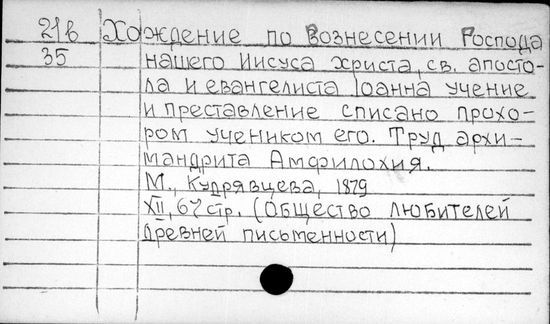 21в Хождение по Вознесении Господа
35 нашего Иисуса Христа, св. апосто-
ла и евангелиста Iоанна учение
и преставление списано прохо-
ром учеником его. Труд архи-
мандрита Амфилохия.
М., Кудрявцева, 1879
XII, 67 стр. (Общество любителей
древней письменности)